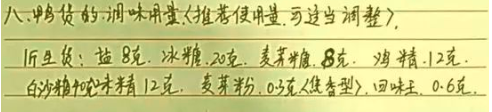 八、鸭货的调味用量〈推荐使用量,可适当调整〉,
1斤生货:盐8克.冰糖.20克.麦芽糖.8克.鸡精.12克.
白沙糖40克味精12克.麦芽粉.0.3克〈焦香型〉.回味王.0.6克.